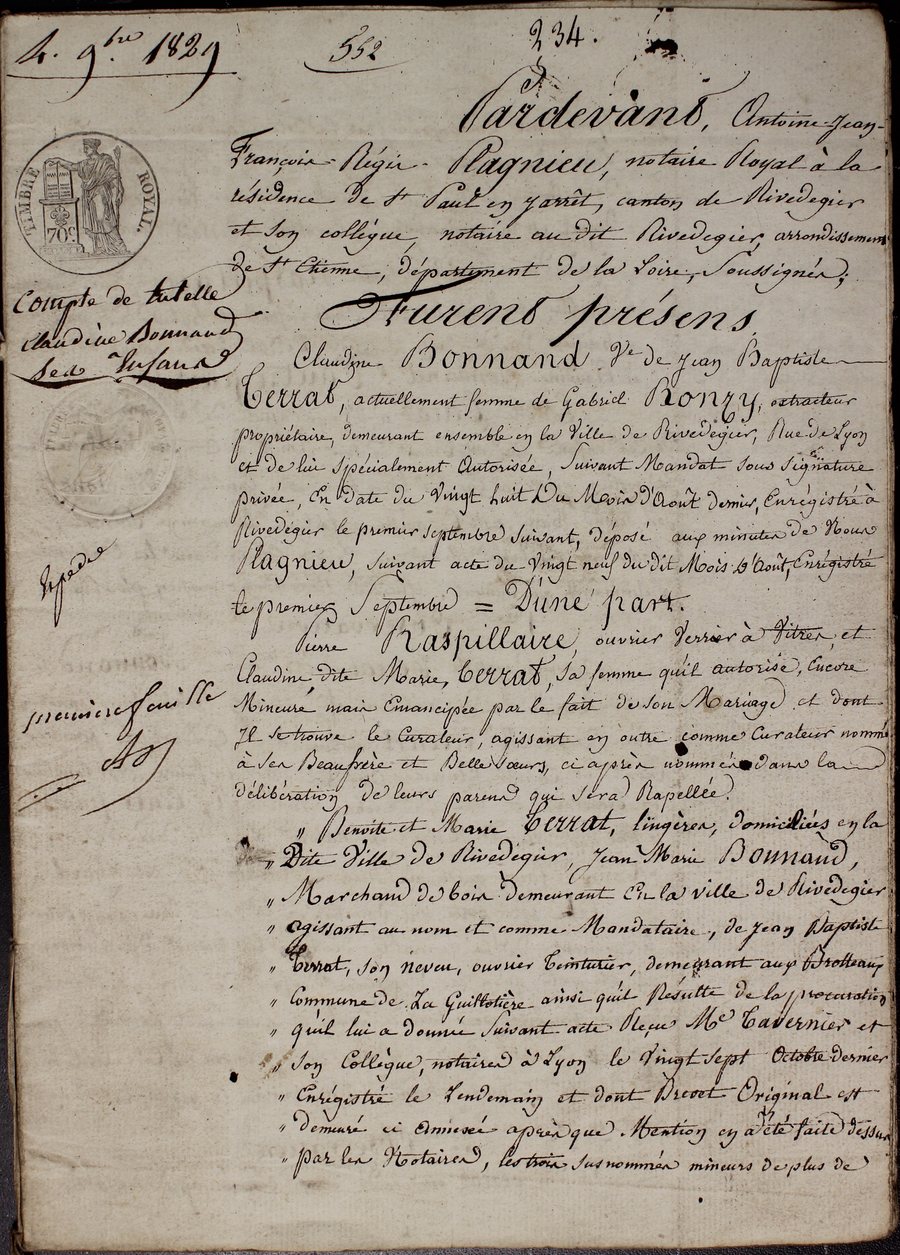 4. 9bre 1829
552
234.
TIMBRE ROYAL.
70c
Compte de tutelle
Claudine Bonnand
Ses Enfans
Expédié
premiere feuille
Pardevant, Antoine-Jean-
François-Régis-Plagnieu, notaire Royal à la
résidence de St Paul en Jarrêt, canton de Rivedegier
et son collégue, notaire au dit Rivedegier, arrondissement
de St Etienne, département de la Loire, Soussignés;
Furent présens
Claudine Bonnand Ve de Jean Baptiste
Terrat, actuellement femme de Gabriel Ronzy, extracteur
propriétaire, demeurant ensemble en la Ville de Rivedegier, Rue de Lyon
et de lui spécialement Autorisée, Suivant Mandat sous signature
privée, En date du Vingt huit du Mois d'Août dernier, Enrégistré à
Rivedégier le premier septembre suivant, déposé aux minutes de Nous
Plagnieu, suivant acte du Vingt neuf du dit Mois d'Août, Enrégistré
le premier Septembre = D'une part.
Pierre Raspillaire, ouvrier Verrier à Vitres, et
Claudine dite Marie, Terrat, Sa femme qu'il autorise, Encore
Mineure mais Emancipée par le fait de son Mariage et dont
Il se trouve le Curateur, agissant en outre comme Curateur nommé
à Ses Beaufrère et Belle Sœurs, ci après nommés dans la
délibération de leurs parens qui sera Rapellée.
" Benoite et Marie Terrat, lingères, domiciliées en la
" Dite Ville de Rivedégier, Jean Marie Bonnand,
" Marchand de bois demeurant En la ville de Rivedegier
" agissant au nom et comme Mandataire, de Jean Baptiste
" Terrat, son neveu, ouvrier Teinturier, demeurant aux Brotteaux
" Commune de La Guillotière ainsi qu'il Résulte de la procuration
" qu'il lui a donnée Suivant acte Reçue Me Tavernier et
" son Collégue, notaires à Lyon le Vingt sept Octobre dernier
" Enrégistré le Lendemain et dont Brevet Original est
" demeuré ci annexé après que Mention en a été faite dessus
" par les Notaires, les trois susnommés mineurs de plus de